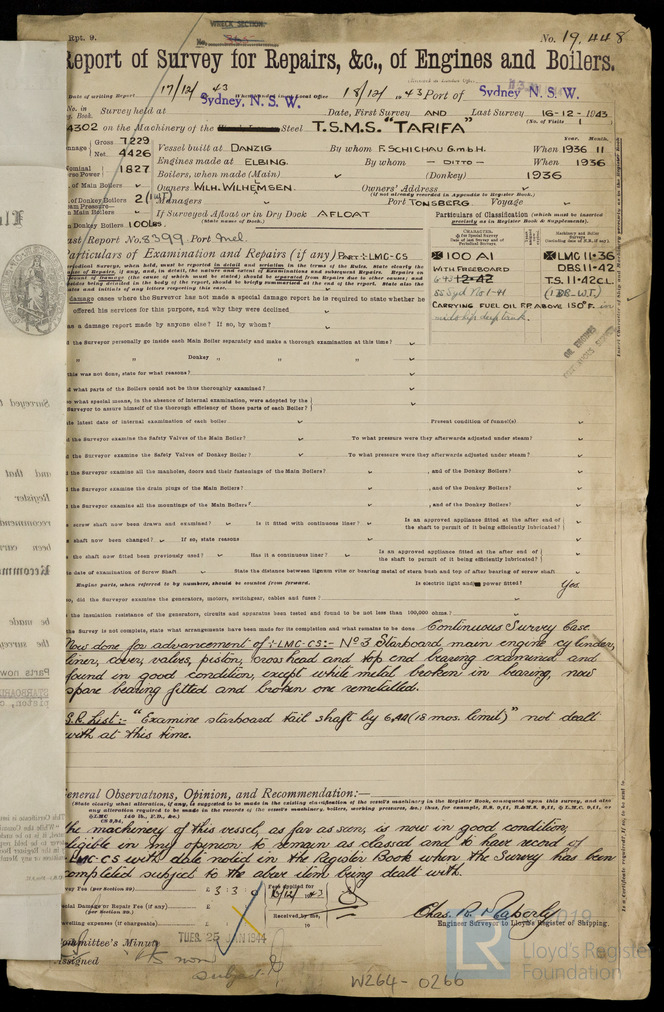 WRECK SECTION.
Rpt. 9.
No.
No. 19,448
Report of Survey for Repairs, &c., of Engines and Boilers.
Date of writing Report 17/12/43 When handed in at Local Office 18/12/43 Port of Sydney, N. S. W.
Sydney, N. S. W.
No. in Survey held at Date, First Survey AND Last Survey 16-12-1943
(No. of Visits 1)
4302 on the Machinery of the Steel T.S.M.S. "TARIFA"
Gross 7229
Net 4426
Vessel built at DANZIG By whom F. SCHICHAU G.m.b.H. When 1936 11
Year. Month.
Engines made at ELBING. By whom — DITTO — When 1936
1827 Boilers, when made (Main) (Donkey) 1936
of Main Boilers
Owners WILH. WILHELMSEN. Owners' Address
(if not already recorded in Appendix to Register Book.)
of Donkey Boilers 2 (1WT) Managers Port TONSBERG. Voyage
Main Boilers
If Surveyed Afloat or in Dry Dock AFLOAT
(State name of Dock.)
Donkey Boilers 100lbs.
Particulars of Classification (which must be inserted precisely as in Register Book & Supplements).
Last Report No. 8399 Port Mel.
Particulars of Examination and Repairs (if any) PART LMC-CS
100 A1
WITH FREEBOARD
12-42
SS Syd No1-41
CARRYING FUEL OIL F.P. ABOVE 150°F. in
midship deep tank.
LMC 11-36
DBS 11-42
T.S. 11-42 CL
(1 DB-W.T.)
OIL ENGINES
damage cases where the Surveyor has not made a special damage report he is required to state whether he
offered his services for this purpose, and why they were declined
as a damage report made by anyone else? If so, by whom?
the Surveyor personally go inside each Main Boiler separately and make a thorough examination at this time?
" " Donkey " " "
this was not done, state for what reasons?
what parts of the Boilers could not be thus thoroughly examined?
what special means, in the absence of internal examination, were adopted by the
Surveyor to assure himself of the thorough efficiency of those parts of each Boiler?
date latest date of internal examination of each boiler Present condition of funnel(s)
the Surveyor examine the Safety Valves of the Main Boiler? To what pressure were they afterwards adjusted under steam?
the Surveyor examine the Safety Valves of Donkey Boiler? To what pressure were they afterwards adjusted under steam?
the Surveyor examine all the manholes, doors and their fastenings of the Main Boilers? , and of the Donkey Boilers?
the Surveyor examine the drain plugs of the Main Boilers? , and of the Donkey Boilers?
the Surveyor examine all the mountings of the Main Boilers? , and of the Donkey Boilers?
screw shaft now been drawn and examined? Is it fitted with continuous liner? Is an approved appliance fitted at the after end of
the shaft to permit of it being efficiently lubricated?
shaft now been changed? If so, state reasons
the shaft now fitted been previously used? Has it a continuous liner? Is an approved appliance fitted at the after end of
the shaft to permit of it being efficiently lubricated?
date of examination of Screw Shaft State the distance between lignum vitæ or bearing metal of stern bush and top of after bearing of screw shaft
Engine parts, when referred to by numbers, should be counted from forward. Is electric light and power fitted? Yes.
so, did the Surveyor examine the generators, motors, switchgear, cables and fuses?
the insulation resistance of the generators, circuits and apparatus been tested and found to be not less than 100,000 ohms?
the Survey is not complete, state what arrangements have been made for its completion and what remains to be done Continuous Survey Case
Now done for advancement of LMC-CS:- No 3 Starboard main engine cylinder,
liner, cover, valves, piston, crosshead and top end bearing examined and
found in good condition, except white metal broken in bearing, now
spare bearing fitted and broken one remetalled.
S.R. List:- "Examine starboard tail shaft by 6,44 (18 mos. limit)" not dealt
with at this time.
General Observations, Opinion, and Recommendation:—
(State clearly what alteration, if any, is suggested to be made in the existing classification of the vessel's machinery in the Register Book, consequent upon this survey, and also
any alteration required to be made in the records of the vessel's machinery, boilers, working pressures, &c.; thus, for example, B.S. 9,11, B.&M.S. 9,11, LMC 9,11, or
LMC 140 lb., F.D., &c.)
the machinery of this vessel, as far as seen, is now in good condition,
eligible in my opinion to remain as classed and to have record of
LMC-CS with date noted in the Register Book when the Survey has been
completed subject to the above item being dealt with.
Survey Fee (per Section 29) £ 3 : 3 : 0 Fees applied for
16/12/1943
Special Damage or Repairs Fee (if any) £
(per Section 29.)
Received by me,
Travelling expenses (if chargeable) £ 19
Chas. R. Maberly
Engineer Surveyor to Lloyd's Register of Shipping.
Committee's Minute TUES. 25 JAN 1944
Assigned As now
subject
W264-0266
LR
Lloyd's Register
Foundation